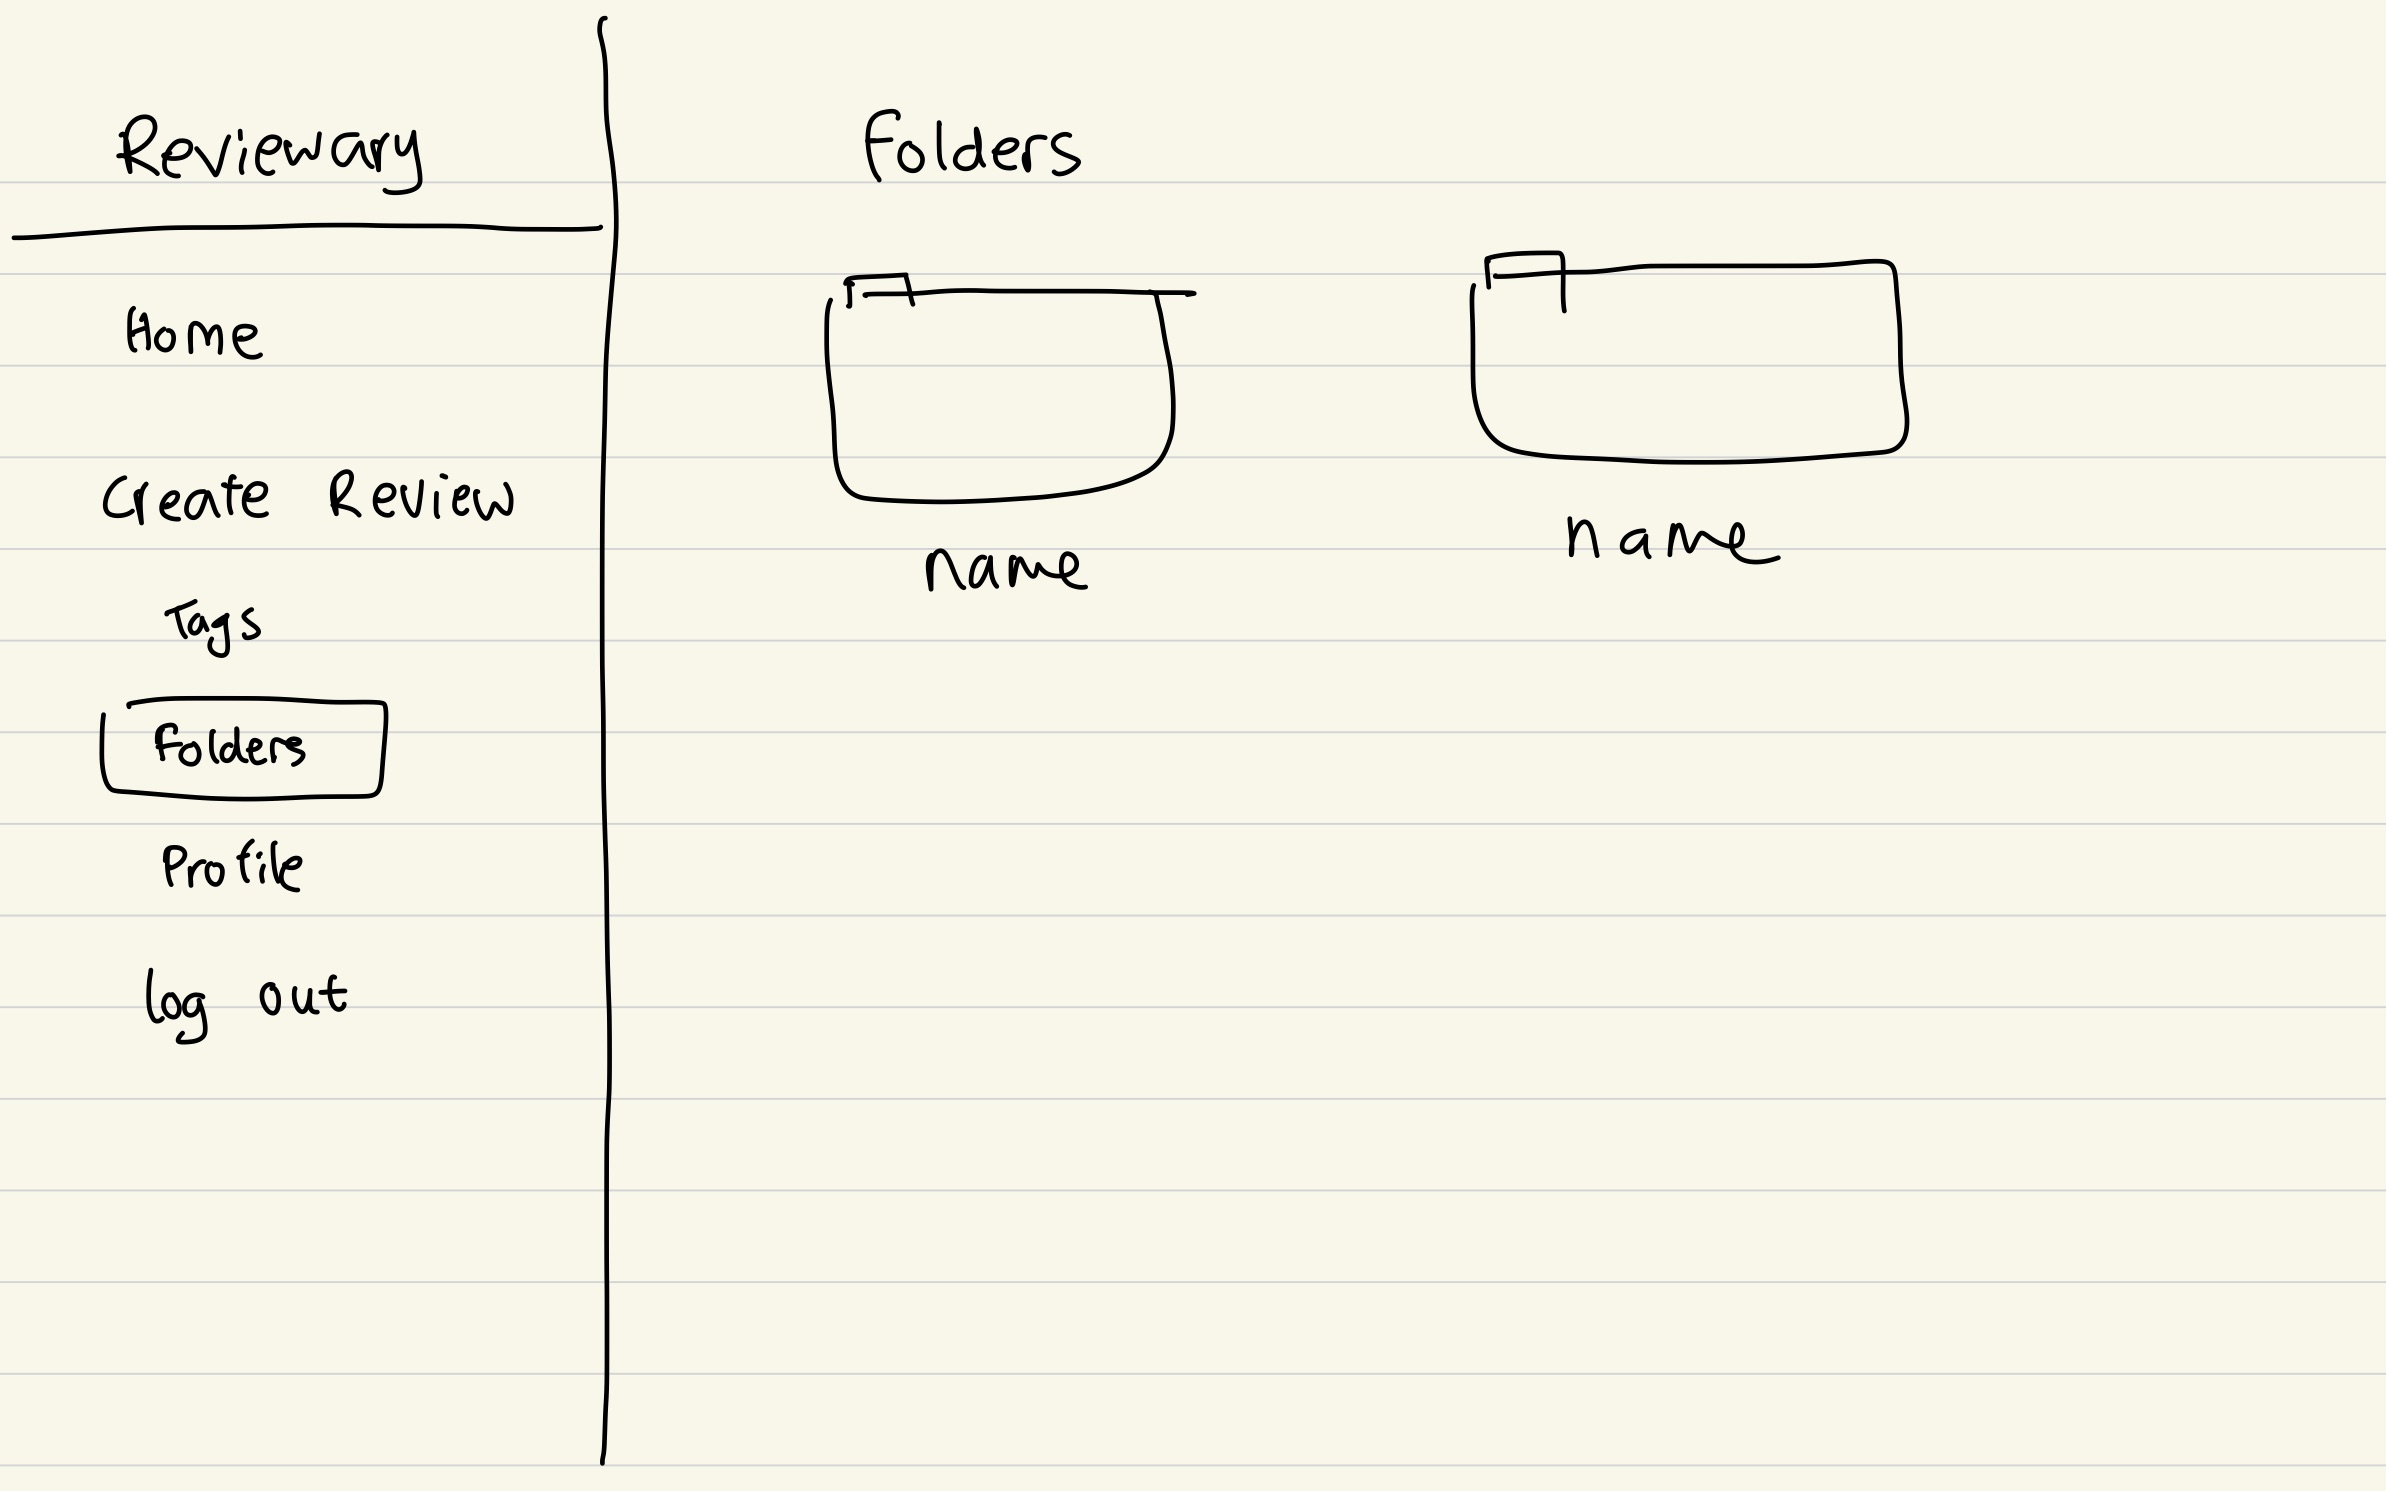 Reviewary
Home
Create Review
Tags
Folders
Profile
log out
Folders
name
name